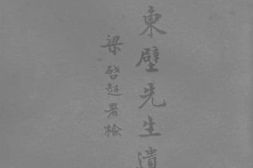 東壁先生遺
梁啓超署檢